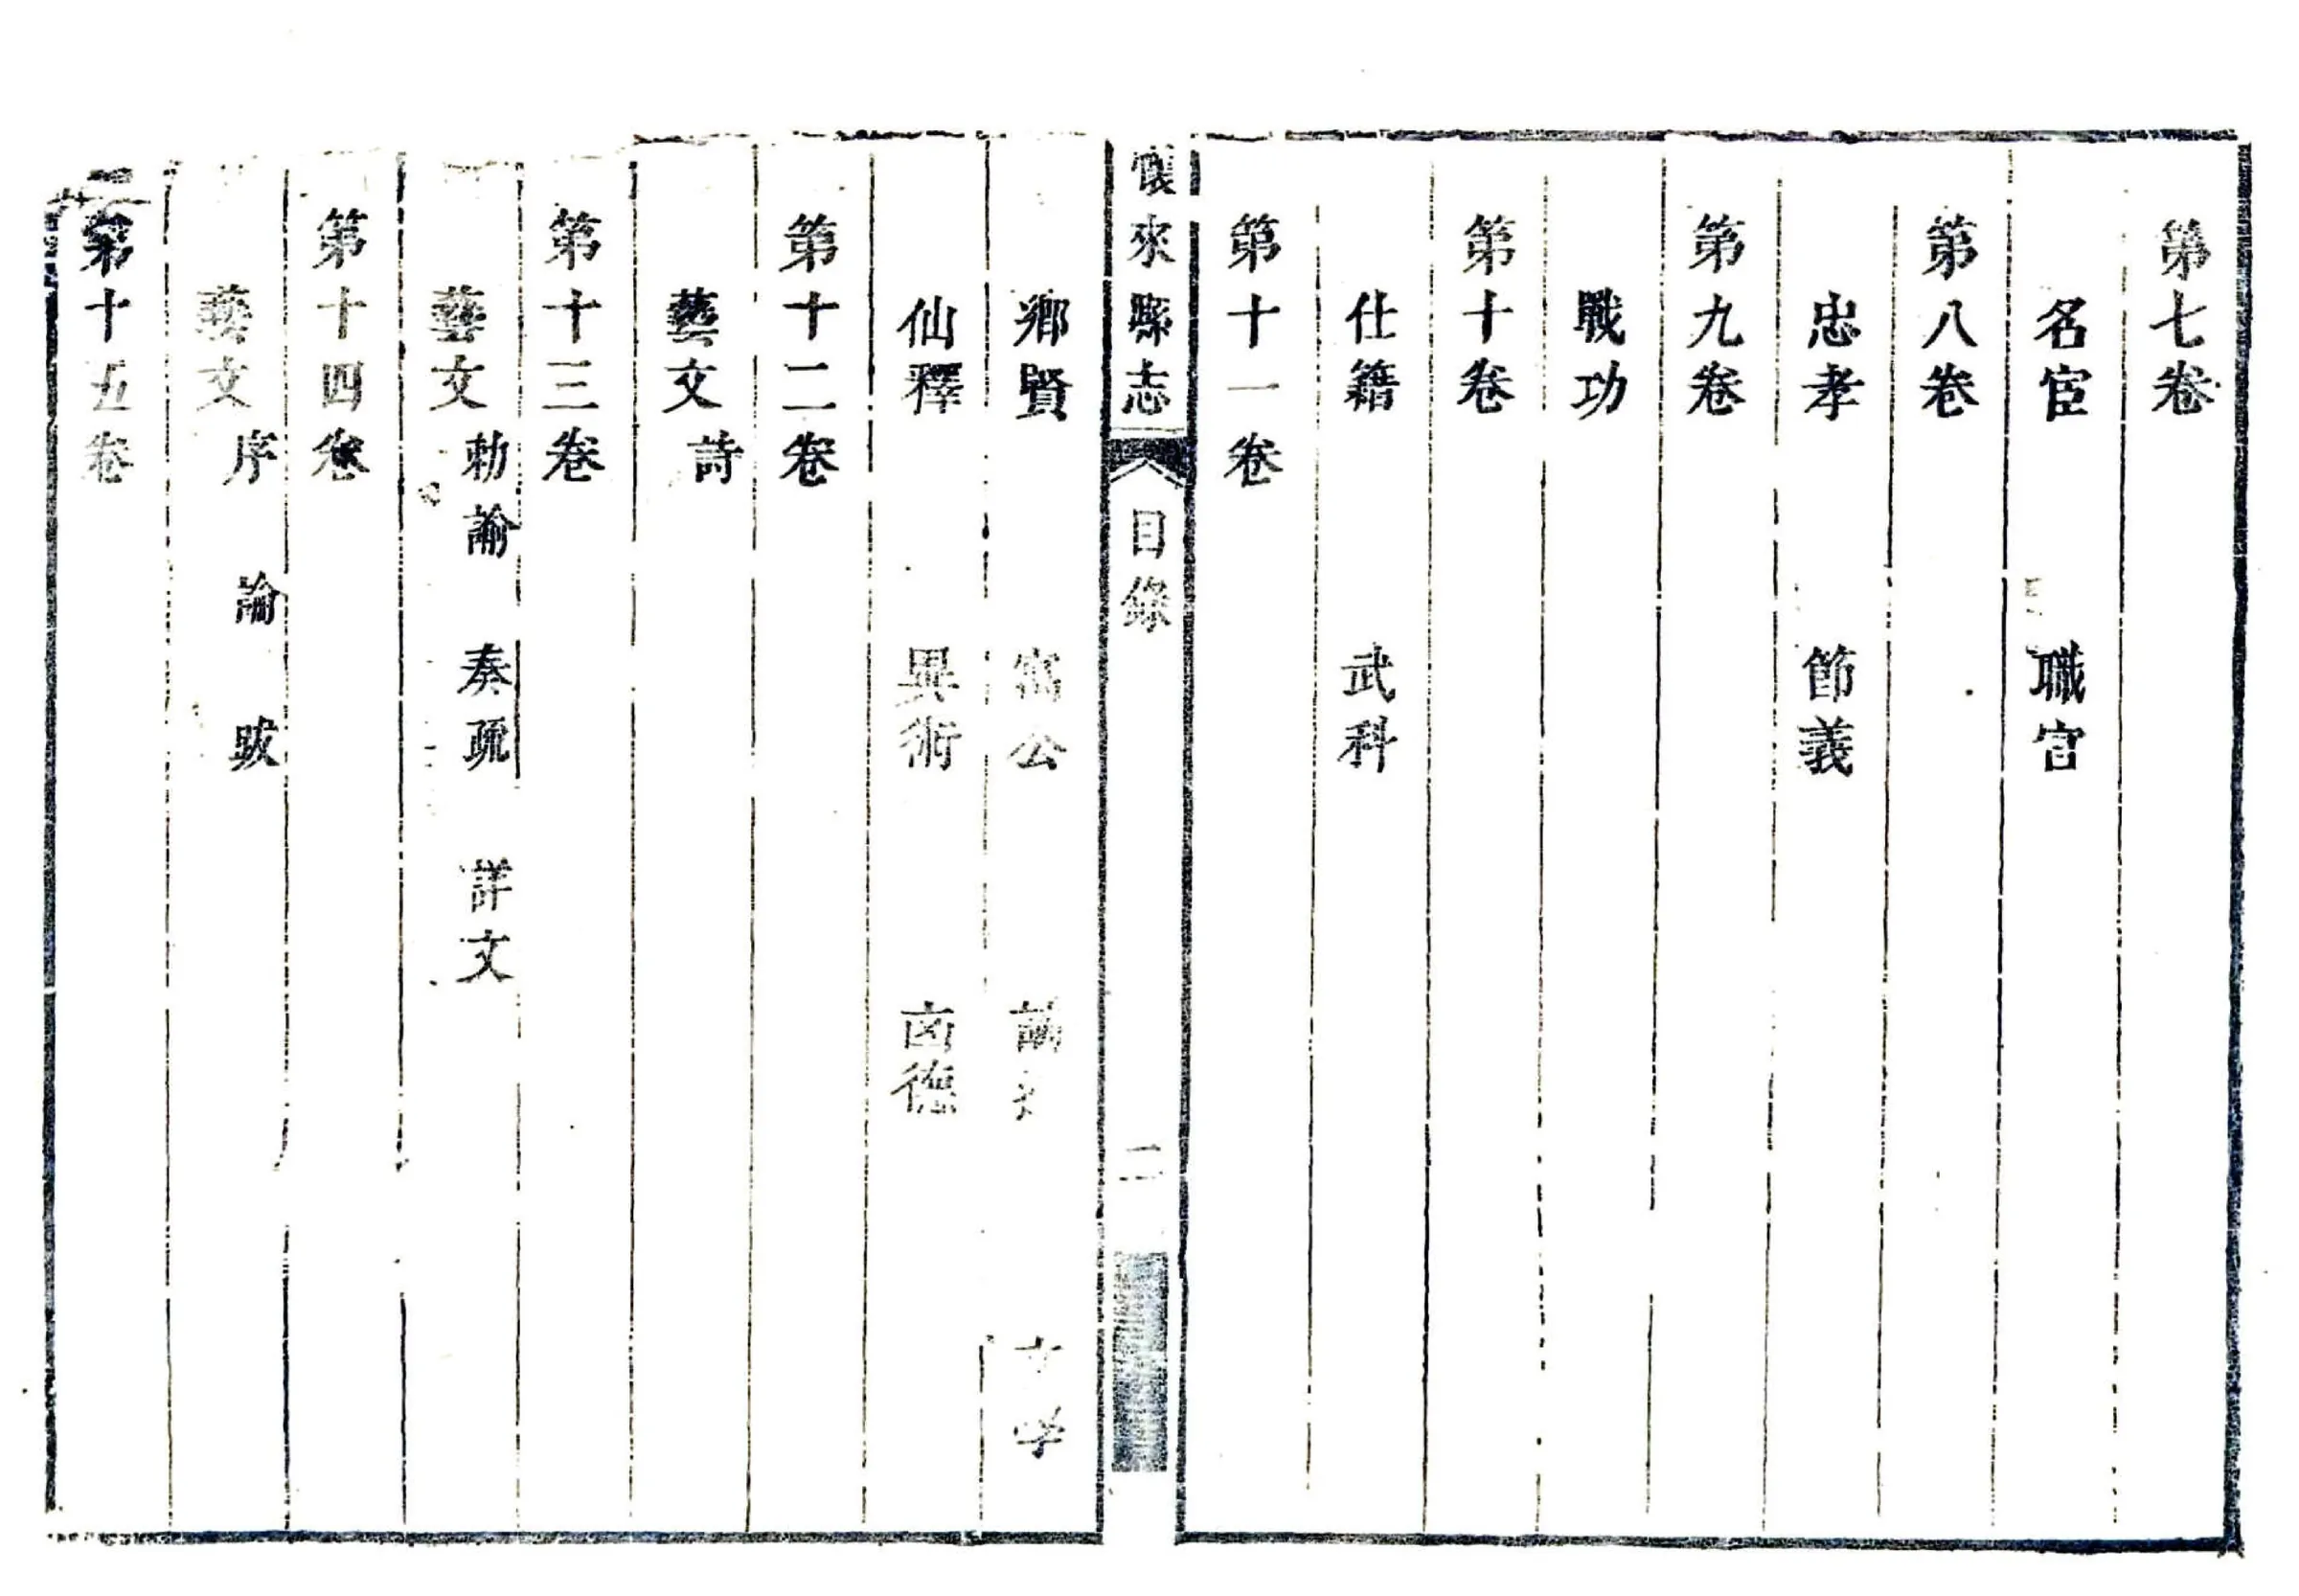 第七卷
名宦 職官
第八卷
忠孝 節義
第九卷
戰功
第十卷
仕籍 武科
第十一卷
懷來縣志 目錄 二
鄉賢 寓公
仙釋 異術 凶德
第十二卷
藝文 詩
第十三卷
藝文 勅諭 奏疏 詳文
第十四卷
藝文 序 論 跋
第十五卷